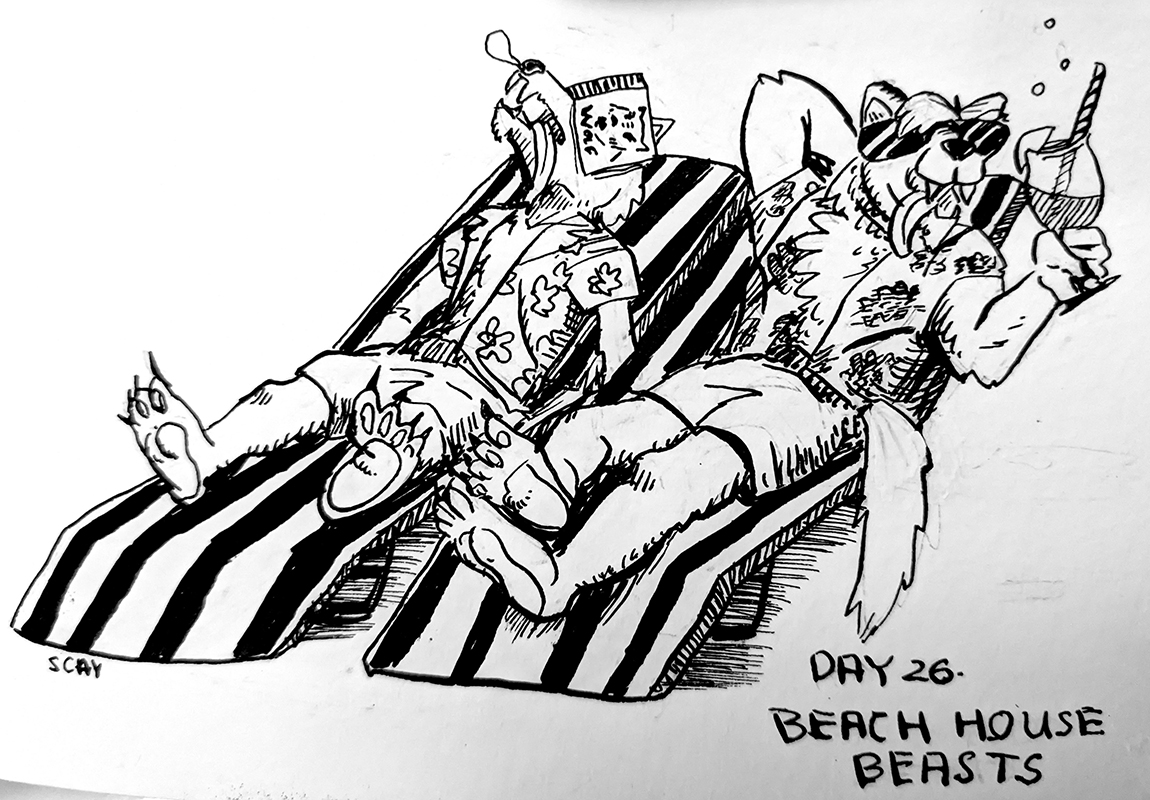 SCAY
DAY 26.
BEACH HOUSE
BEASTS